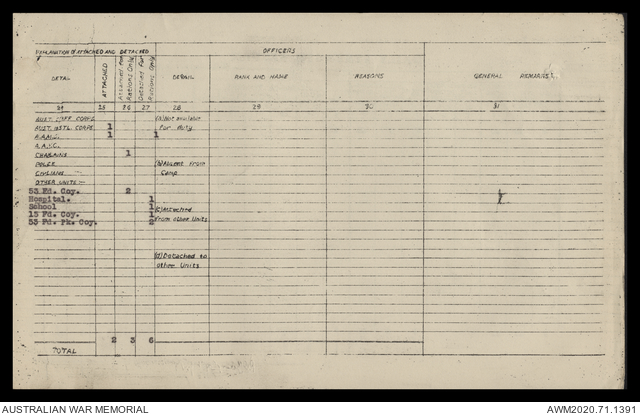 EXPLANATION OF ATTACHED AND DETACHED OFFICERS
DETAIL ATTACHED Attached for Rations Only Detached for Rations Only DETAIL RANK AND NAME REASONS GENERAL REMARKS
25 26 27 28 29 30 31
AUST. CORPS (a) Not available
AUST. INTL. CORPS 1 for duty
A.A.M.C. 1 1
A.A.V.C.
CHAPLAINS 1
POLICE (b) Absent from
CIVILIANS Camp
OTHER UNITS:-
53 Fd. Coy. 2
Hospital. 1
School 1 (c) Attached
15 Fd. Coy. 1 from other Units
53 Fd. Pk. Coy. 2
(d) Detached to
other Units
2 3 6
TOTAL
AUSTRALIAN WAR MEMORIAL AWM2020.71.1391